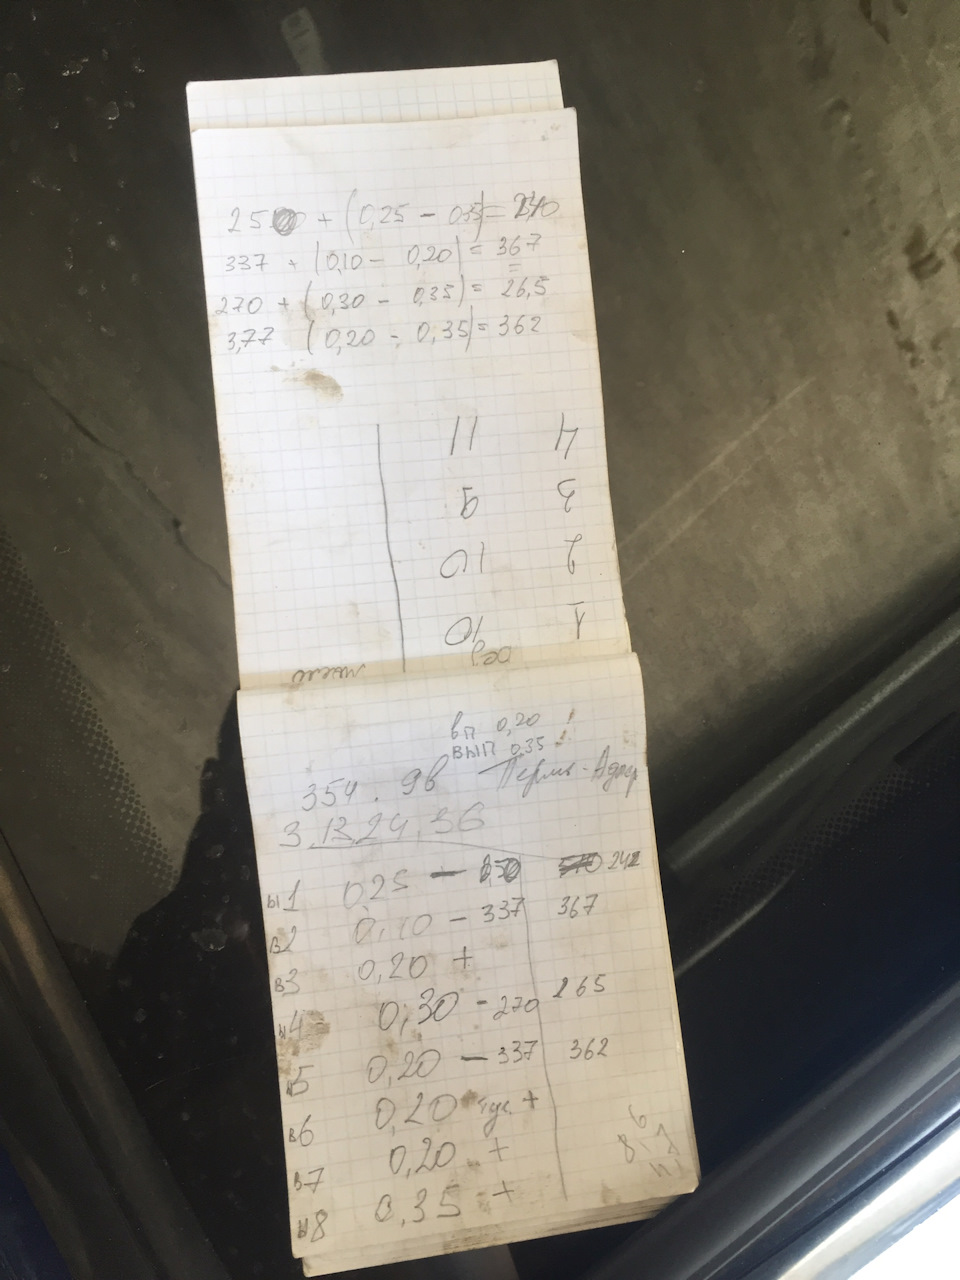 250 + (0,25 - 0,35) = 240
337 + (0,10 - 0,20) = 367
270 + (0,30 - 0,35) = 26,5
3,77 (0,20 - 0,35) = 362
4 11
3 9
2 10
1 10
вп 0,20
вып 0,35
354. 9в Пермь-Адлер
3,13,24,36
в1 0,25 - 242
в2 0,10 - 337 367
в3 0,20 +
4 0,30 - 270 265
5 0,20 - 337 362
в6 0,20 +
в7 0,20 +
8 0,35 +